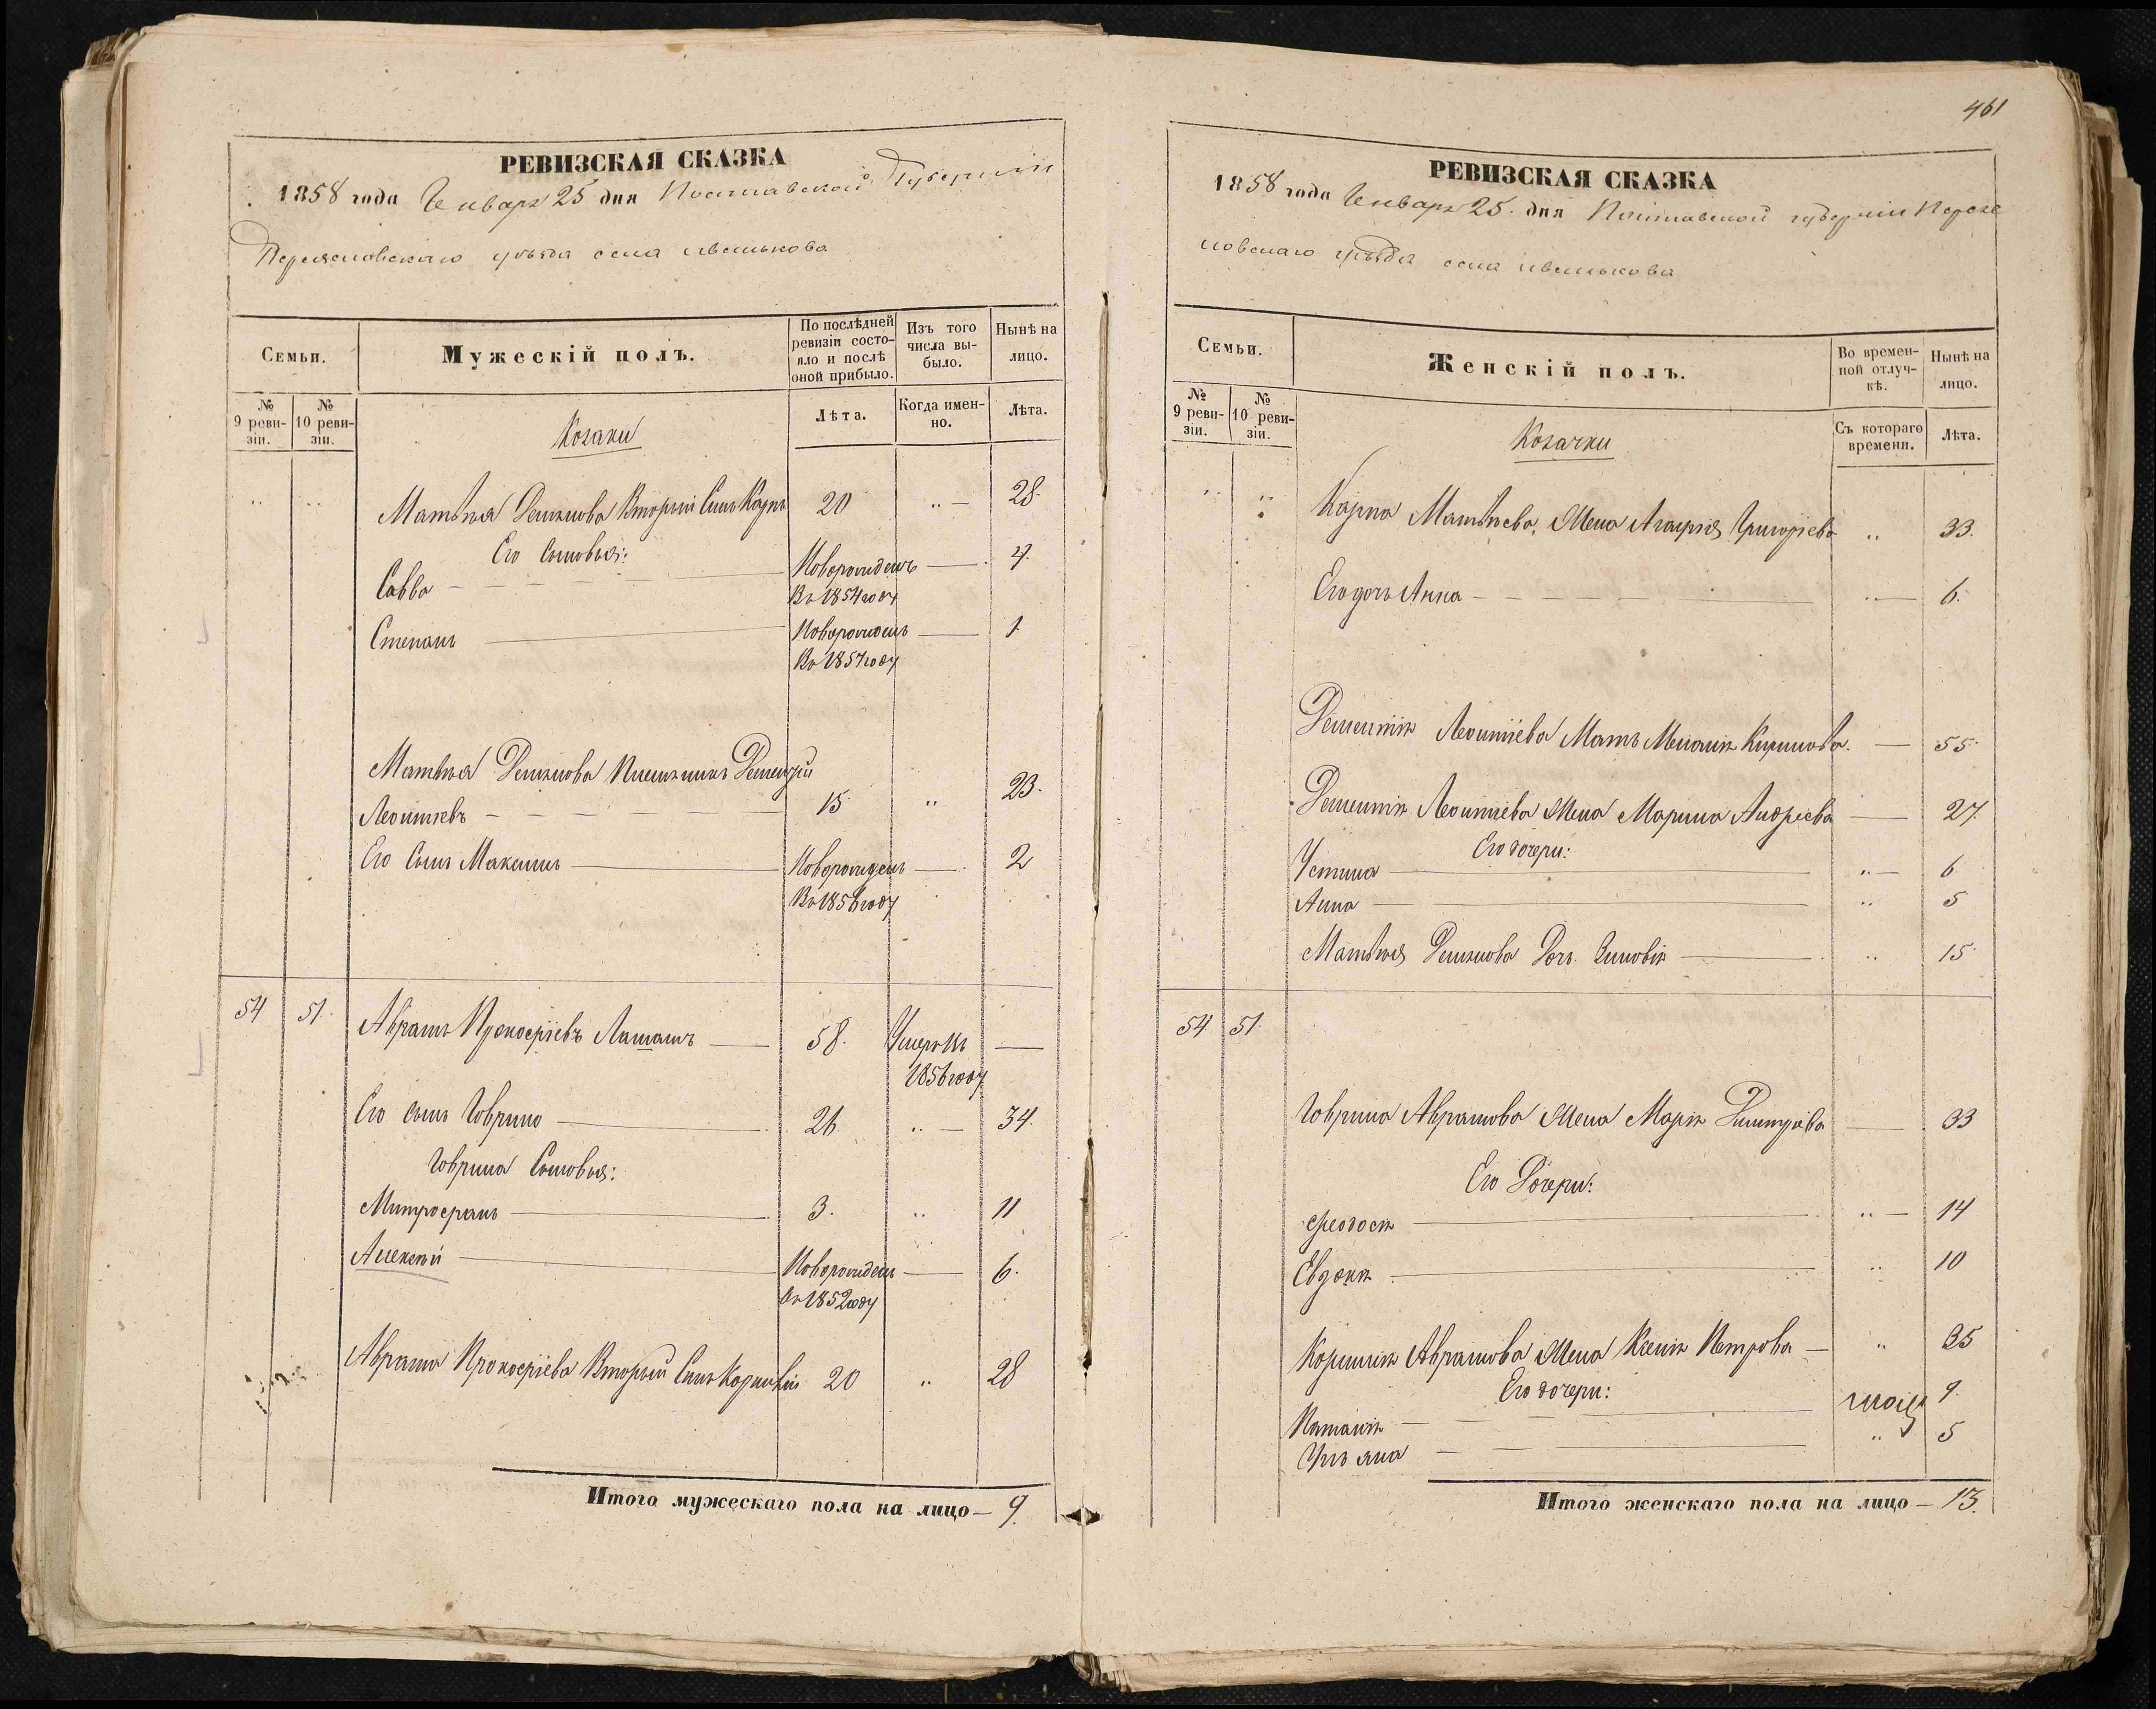 РЕВИЗСКАЯ СКАЗКА
1858 года Генваря 25 дня Полтавской Губерніи
Переясловскаго уѣзда села
Семьи.
Мужескій полъ.
По послѣдней ревизіи состояло и послѣ оной прибыло.
Изъ того числа выбыло.
Нынѣ на лицо.
№ 9 ревизіи.
№ 10 ревизіи.
Козаки
Лѣта.
Когда именно.
Лѣта.
Матвѣя Демянова Вторый Сынъ Карпъ 20 28
Его Сыновья:
Савва Новорожденъ 4
Въ 1854 году
Степанъ Новорожденъ 1
Въ 1857 году
Матвѣя Демянова Племянникъ Дементій
Леонтіевъ 15 23
Его Сынъ Максимъ Новорожденъ 2
Въ 1856 году
54 51 Аврамъ Прокофіевъ 58 Умеръ въ —
1856 году
Его сынъ Говрило 26 34
Говрила Сыновья:
Митрофанъ 3 11
Алексѣй Новорожденъ 6
Въ 1852 году
Аврама Прокофіева Вторый Сынъ Корнилій 20 28
Итого мужескаго пола на лицо — 9.
461
РЕВИЗСКАЯ СКАЗКА
1858 года Генваря 25 дня Полтавской губерніи Перея
словскаго уѣзда села
Семьи.
Женскій полъ.
Во временной отлучкѣ.
Нынѣ на лицо.
№ 9 ревизіи.
№ 10 ревизіи.
Козачки
Съ котораго времени.
Лѣта.
Карпа Матвѣева Жена Агафія Григоріева 33
Его дочь Анна 6
Дементія Леонтіева Мать Меланія Кирилова 55
Дементія Леонтіева Жена Марина Андреева 27
Его дочери:
Устина 6
Анна 5
Матвѣя Демянова Дочь Зиновія 15
54 51
Говрила Аврамова Жена Марія Димитріева 33
Его Дочери:
Феодосія 14
Евдокія 10
Корнилія Аврамова Жена Ксенія Петрова 35
Его дочери:
Наталія 9
Ульяна 5
Итого женскаго пола на лицо — 13